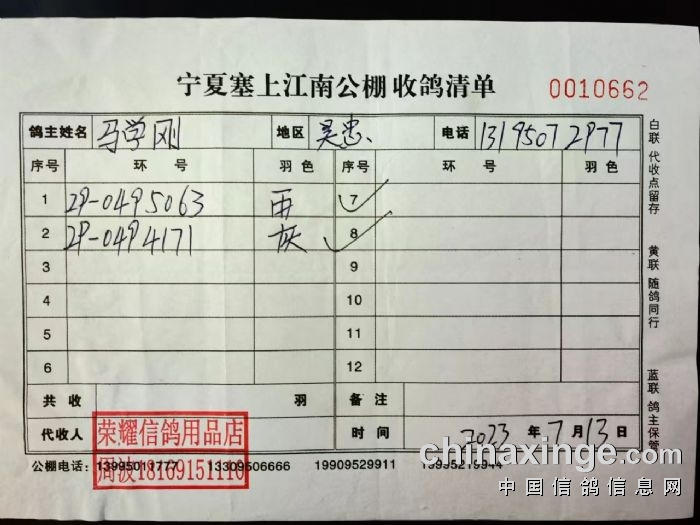 宁夏塞上江南公棚收鸽清单 0010662
鸽主姓名 马学刚 地区 吴忠 电话
序号 环 号 羽色 序号 环 号 羽色
1 29-0495063 雨 7
2 29-0494171 灰 8
3 9
4 10
5 11
6 12
共收 羽 备 注
代收人 时 间 2023 年 7 月 13 日
荣耀信鸽用品店
周波18169151110
公棚电话: 13995011777 13309506666 19909529911 19995219944
白联 代收点留存
黄联 随鸽同行
蓝联 鸽主保管
chinaxinge.com
中国信鸽信息网